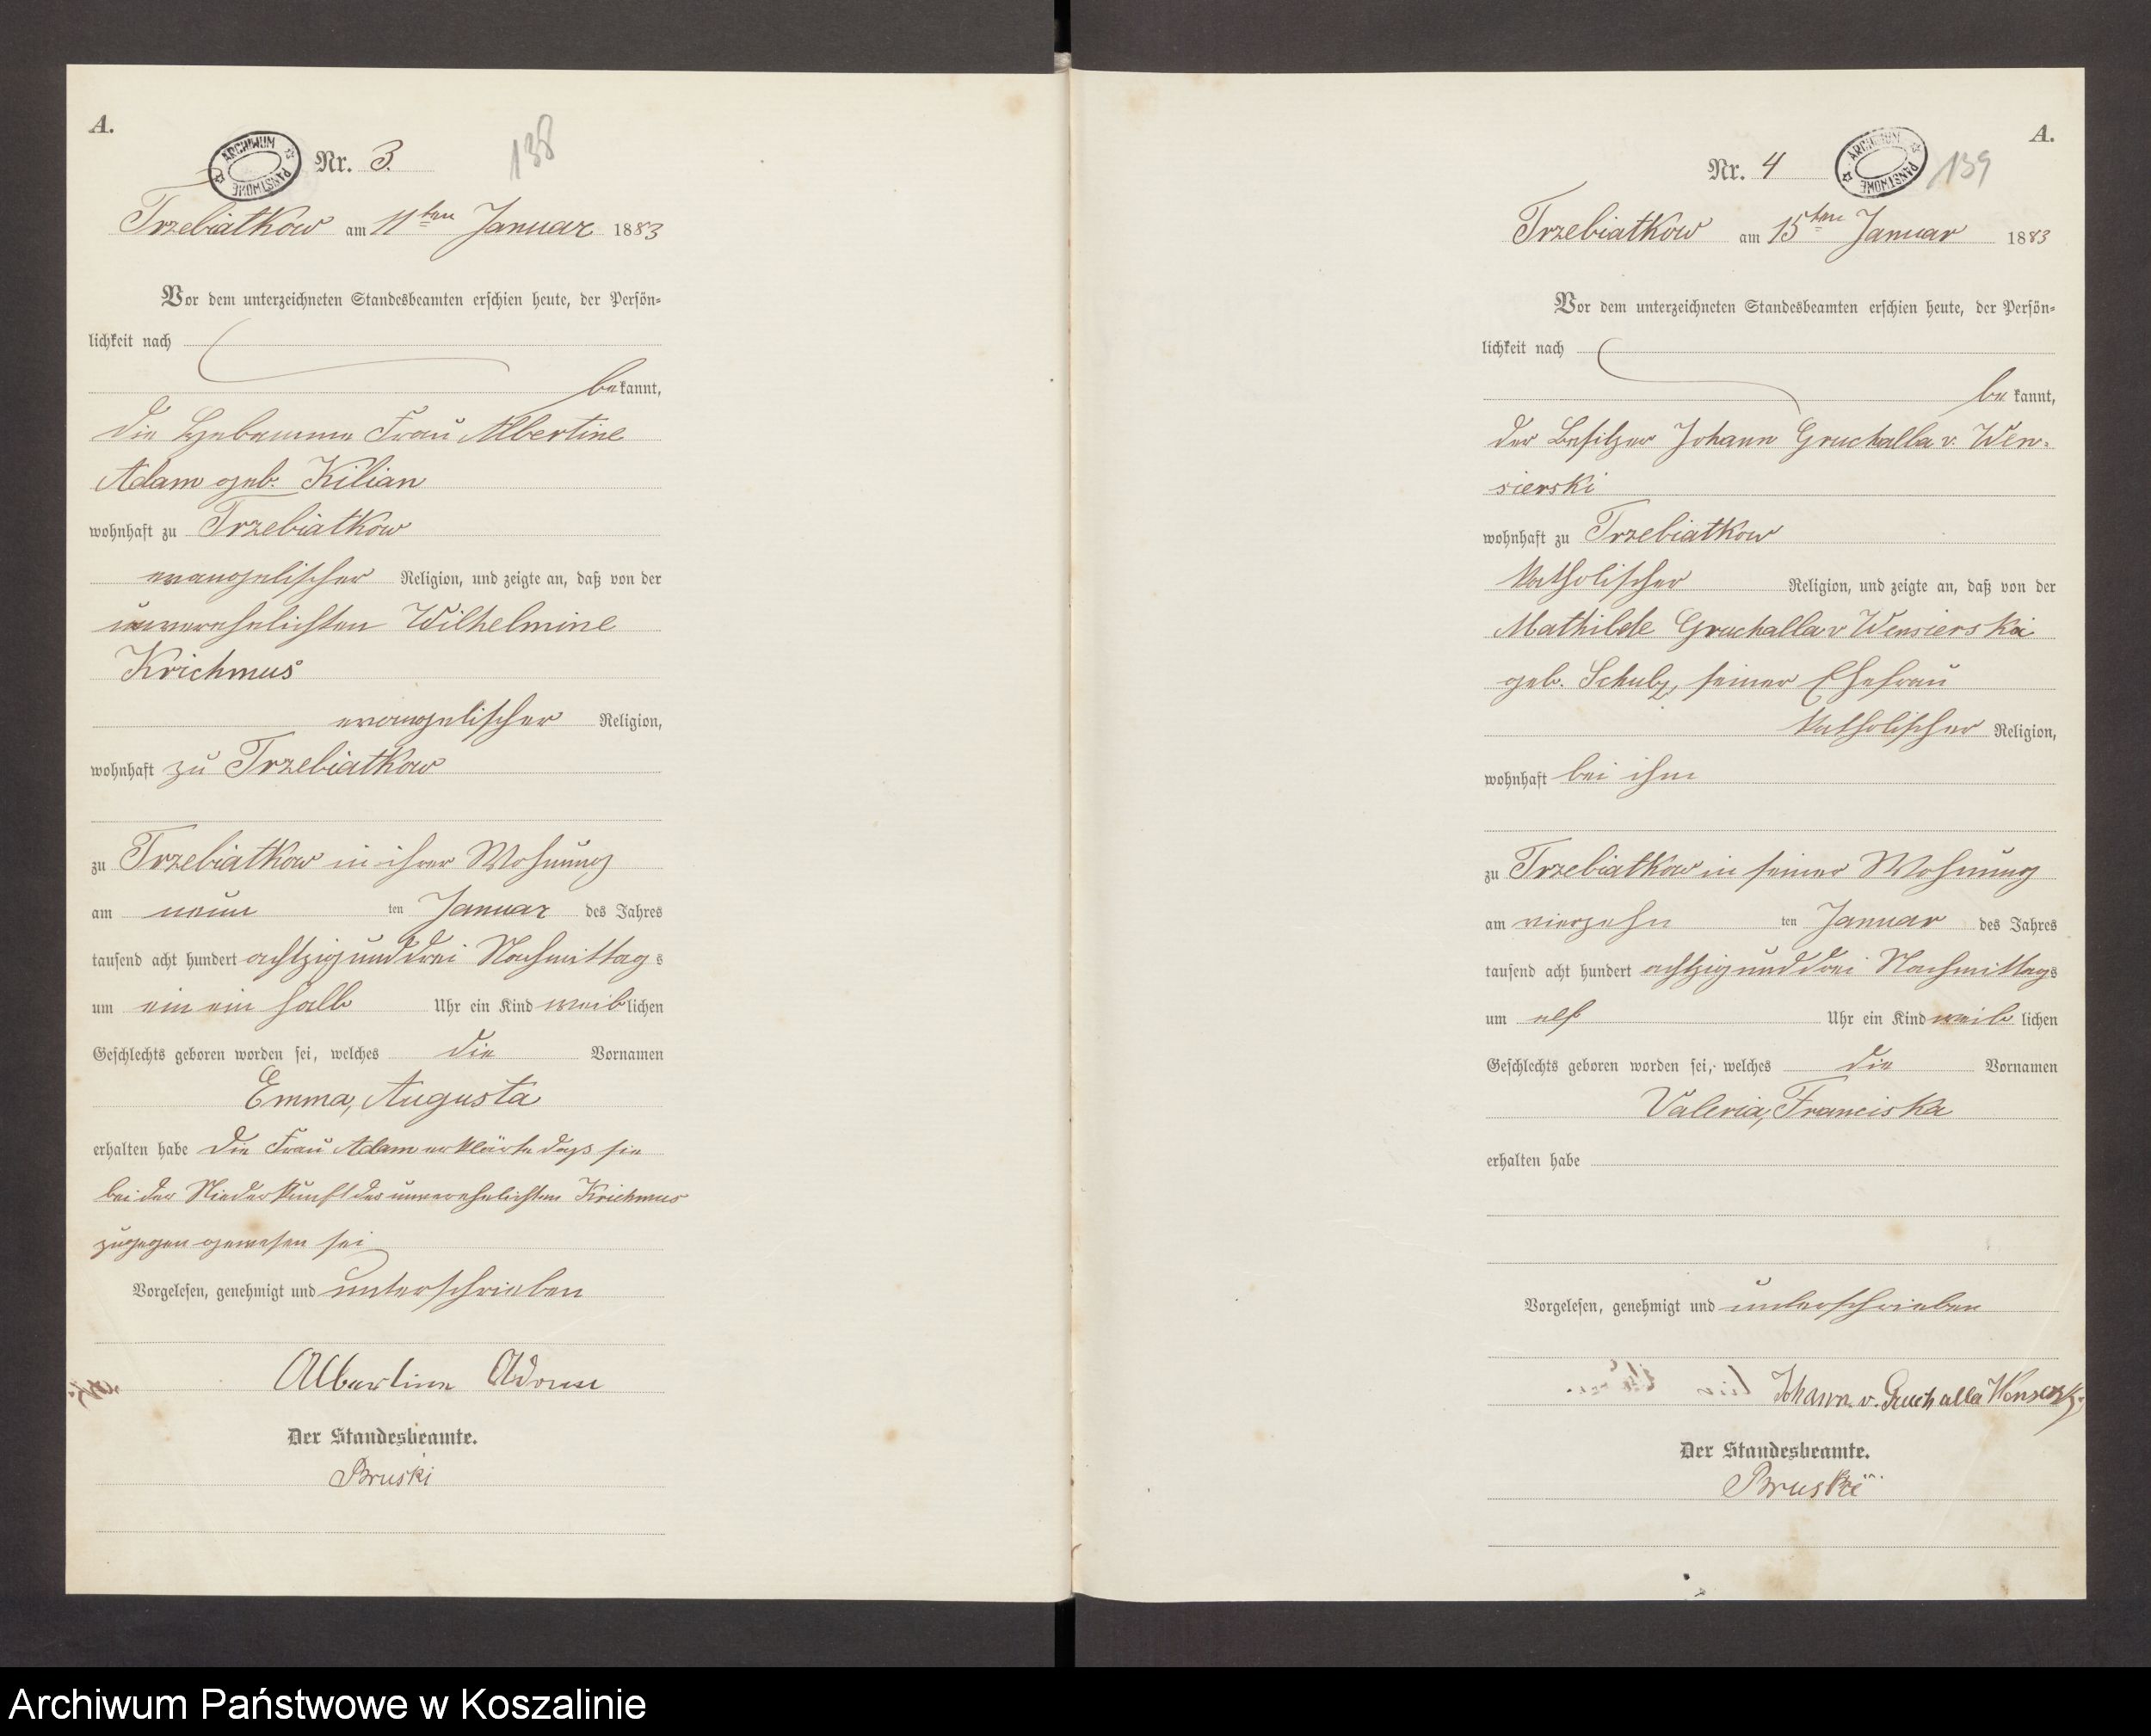 A.
ARCHIWUM PAŃSTWOWE
Nr. 3.
138
Trzebiatkow am 11ten Januar 1883
Vor dem unterzeichneten Standesbeamten erschien heute, der Persön=
lichkeit nach
bekannt,
die Hebamme Frau Albertine
Adam geb. Kilian
wohnhaft zu Trzebiatkow
evangelischer Religion, und zeigte an, daß von der
unverehelichten Wilhelmine
Krichmus
evangelischer Religion,
wohnhaft zu Trzebiatkow
zu Trzebiatkow in ihrer Wohnung
am neun ten Januar des Jahres
tausend acht hundert achtzig und drei Nachmittags
um ein ein halb Uhr ein Kind weiblichen
Geschlechts geboren worden sei, welches die Vornamen
Emma, Augusta
erhalten habe Die Frau Adam erklärte dass sie
bei der Niederkunft der unverehelichten Krichmus
zugegen gewesen sei
Vorgelesen, genehmigt und unterschrieben
Albertine Adam
Der Standesbeamte.
Bruski
A.
Nr. 4
ARCHIWUM PAŃSTWOWE
139
Trzebiatkow am 15ten Januar 1883
Vor dem unterzeichneten Standesbeamten erschien heute, der Persön=
lichkeit nach
bekannt,
der Besitzer Johann Gruchalla v. Wen-
sierski
wohnhaft zu Trzebiatkow
katholischer Religion, und zeigte an, daß von der
Mathilde Gruchalla v Wensierski
geb. Schulz, seiner Ehefrau
katholischer Religion,
wohnhaft bei ihm
zu Trzebiatkow in seiner Wohnung
am vierzehn ten Januar des Jahres
tausend acht hundert achtzig und drei Nachmittags
um elf Uhr ein Kind weiblichen
Geschlechts geboren worden sei, welches die Vornamen
Valeria, Franciska
erhalten habe
Vorgelesen, genehmigt und unterschrieben
Johann v. Gruchalla
Der Standesbeamte.
Bruski
Archiwum Państwowe w Koszalinie